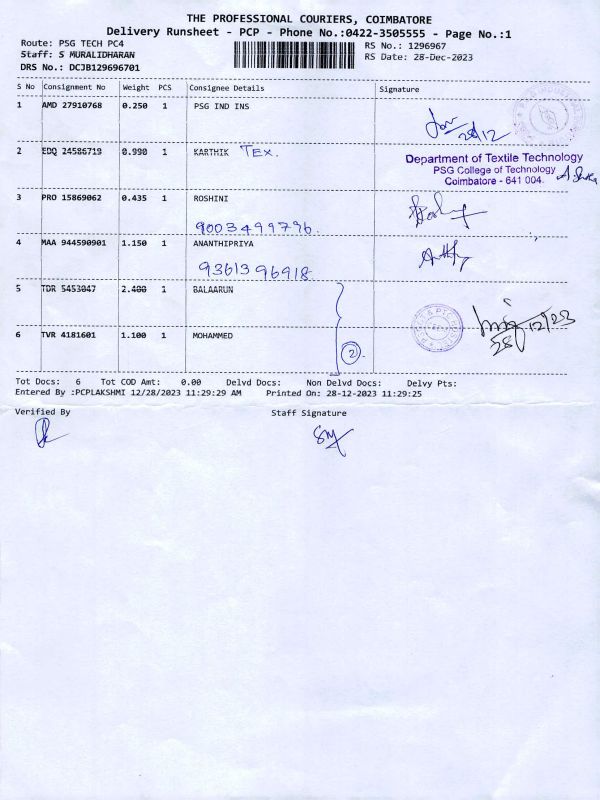 THE PROFESSIONAL COURIERS, COIMBATORE
Delivery Runsheet - PCP - Phone No.:0422-3505555 - Page No.:1
Route: PSG TECH PC4
Staff: S MURALIDHARAN
DRS No.: DCJB129696701
RS No.: 1296967
RS Date: 28-Dec-2023
S No Consignment No Weight PCS Consignee Details Signature
1 AMD 27910768 0.250 1 PSG IND INS
28/12
2 EDQ 24586719 0.990 1 KARTHIK TEX.
Department of Textile Technology
PSG College of Technology
Coimbatore - 641 004.
3 PRO 15869062 0.435 1 ROSHINI
9003499796
4 MAA 944590901 1.150 1 ANANTHIPRIYA
9361396918
5 TDR 5453047 2.400 1 BALAARUN
28/12/23
6 TVR 4181601 1.100 1 MOHAMMED
2
Tot Docs: 6 Tot COD Amt: 0.00 Delvd Docs: Non Delvd Docs: Delvy Pts:
Entered By :PCPLAKSHMI 12/28/2023 11:29:29 AM Printed On: 28-12-2023 11:29:25
Verified By Staff Signature